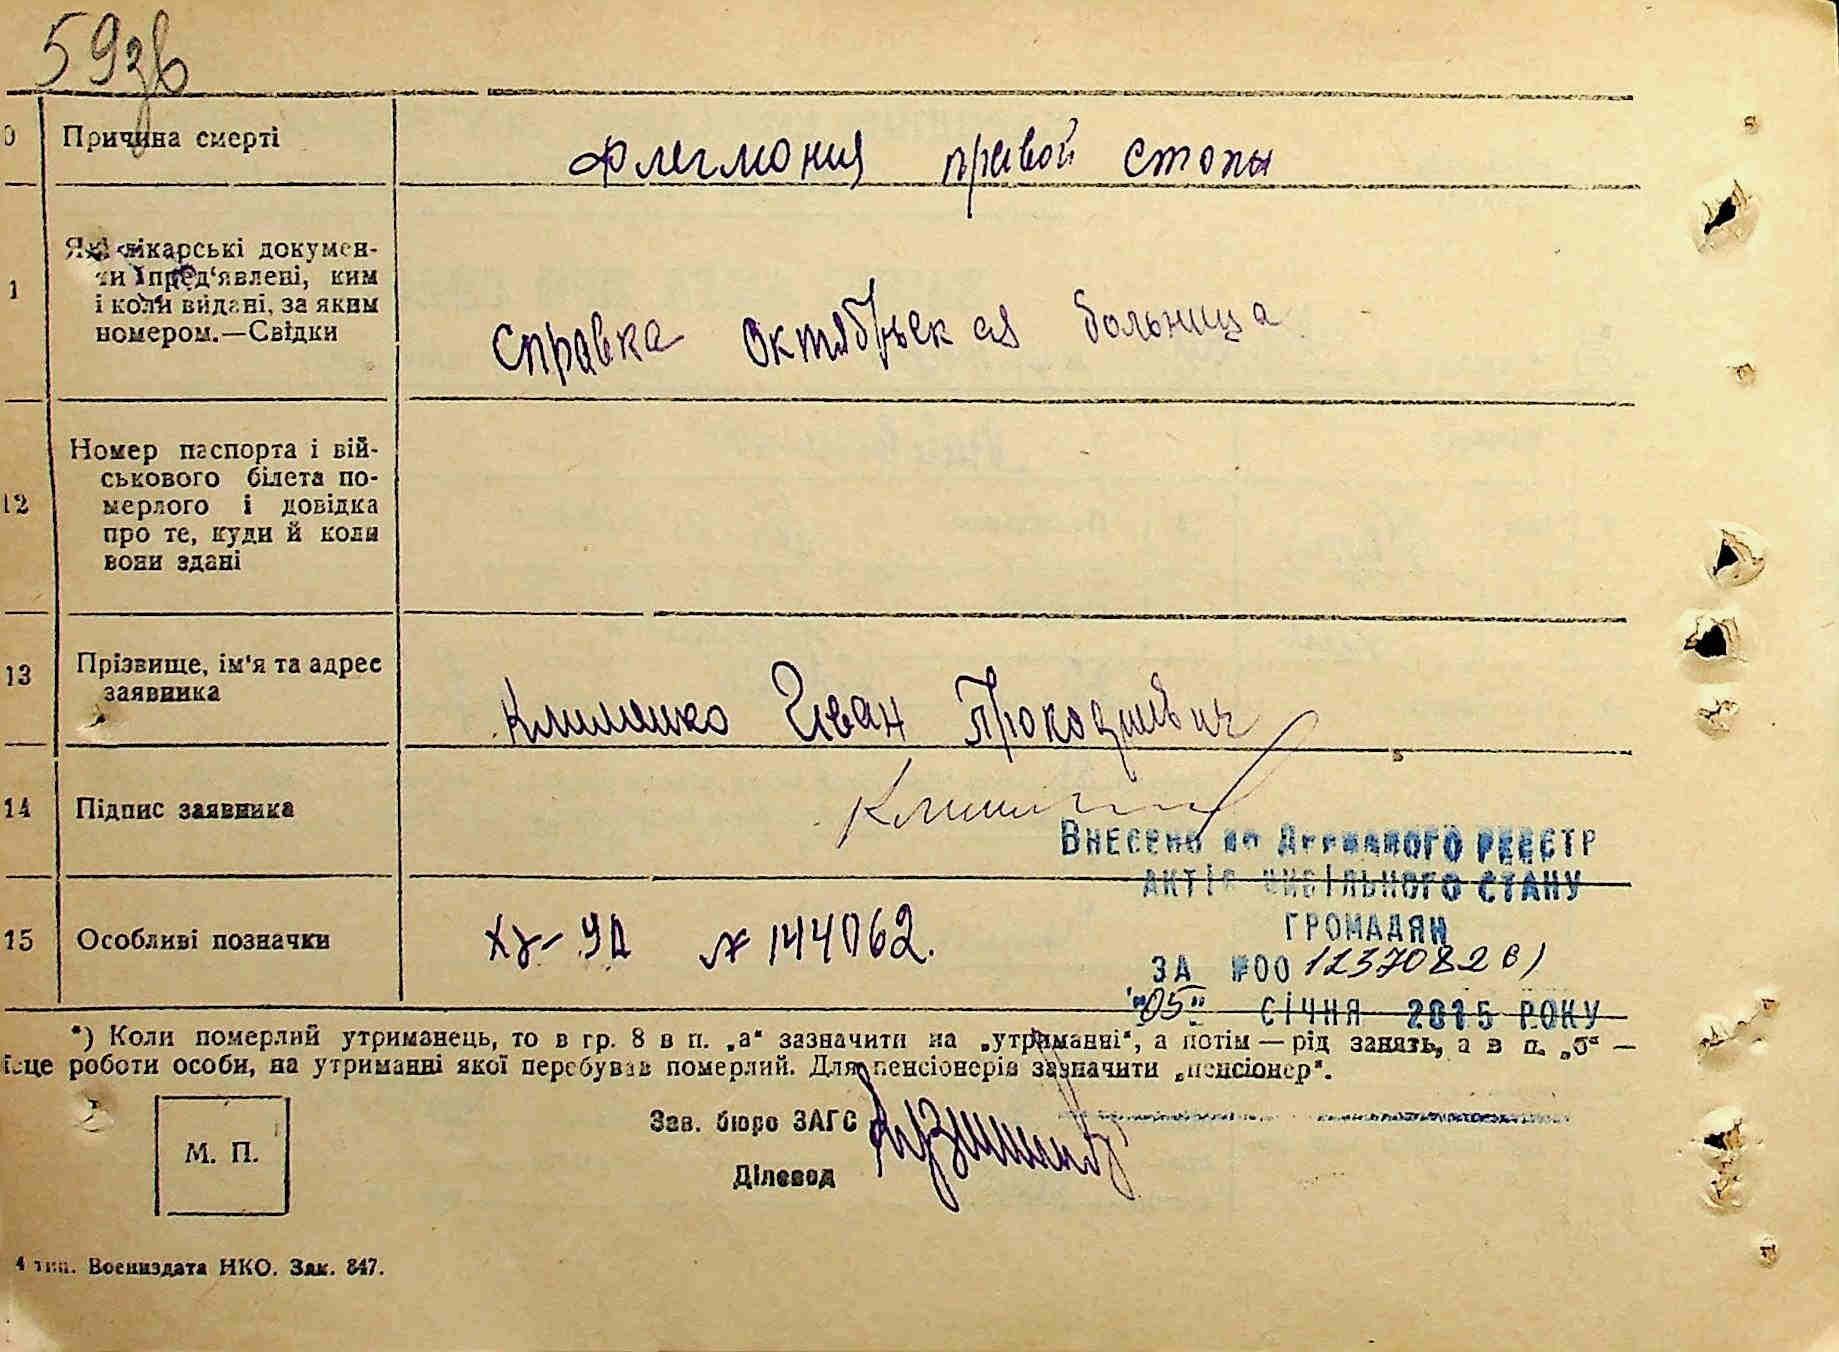 59зв
0 Причина смерті
Флегмония правой стопы
1 Які лікарські докумен-
ти пред'явлені, ким
і коли видані, за яким
номером.—Свідки
Справка октябрьская больница
12 Номер паспорта і вій-
ськового білета по-
мерлого і довідка
про те, куди й коли
вони здані
13 Прізвище, ім'я та адрес
заявника
Иван
14 Підпис заявника
Внесено до Державного реєстр
актів цивільного стану
громадян
15 Особливі позначки
№ 144062.
за №00 123708261
"05" січня 2015 року
*) Коли померлий утриманець, то в гр. 8 в п. „а“ зазначити на „утриманні“, а потім — рід занять, а в п. „б“ —
ісце роботи особи, на утриманні якої перебував померлий. Для пенсіонерів зазначити „пенсіонер“.
М. П.
Зав. бюро ЗАГС
Діловод
4 тип. Воениздата НКО. Зак. 847.